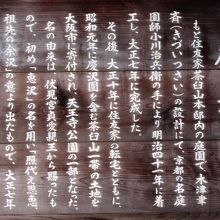 もと住友家茶臼山本邸内の庭園で、木津聿
斉(きづいっさい)の設計にて、京都の名庭
園師小川治兵衛の手により明治四十一年に着
工し、大正七年に完成した。
その後、大正十年に住友家の転宅とともに、
昭和元年に慶沢園を含む茶臼山一帯の土地を
大阪市に寄付され、天王寺公園の一部となった
名の由来は、伏見宮貞愛親王から賜ったも
ので、初めは「恵沢」の名を用い「照代の恩恵
祖先の余沢」の意より出たもので、大正十年